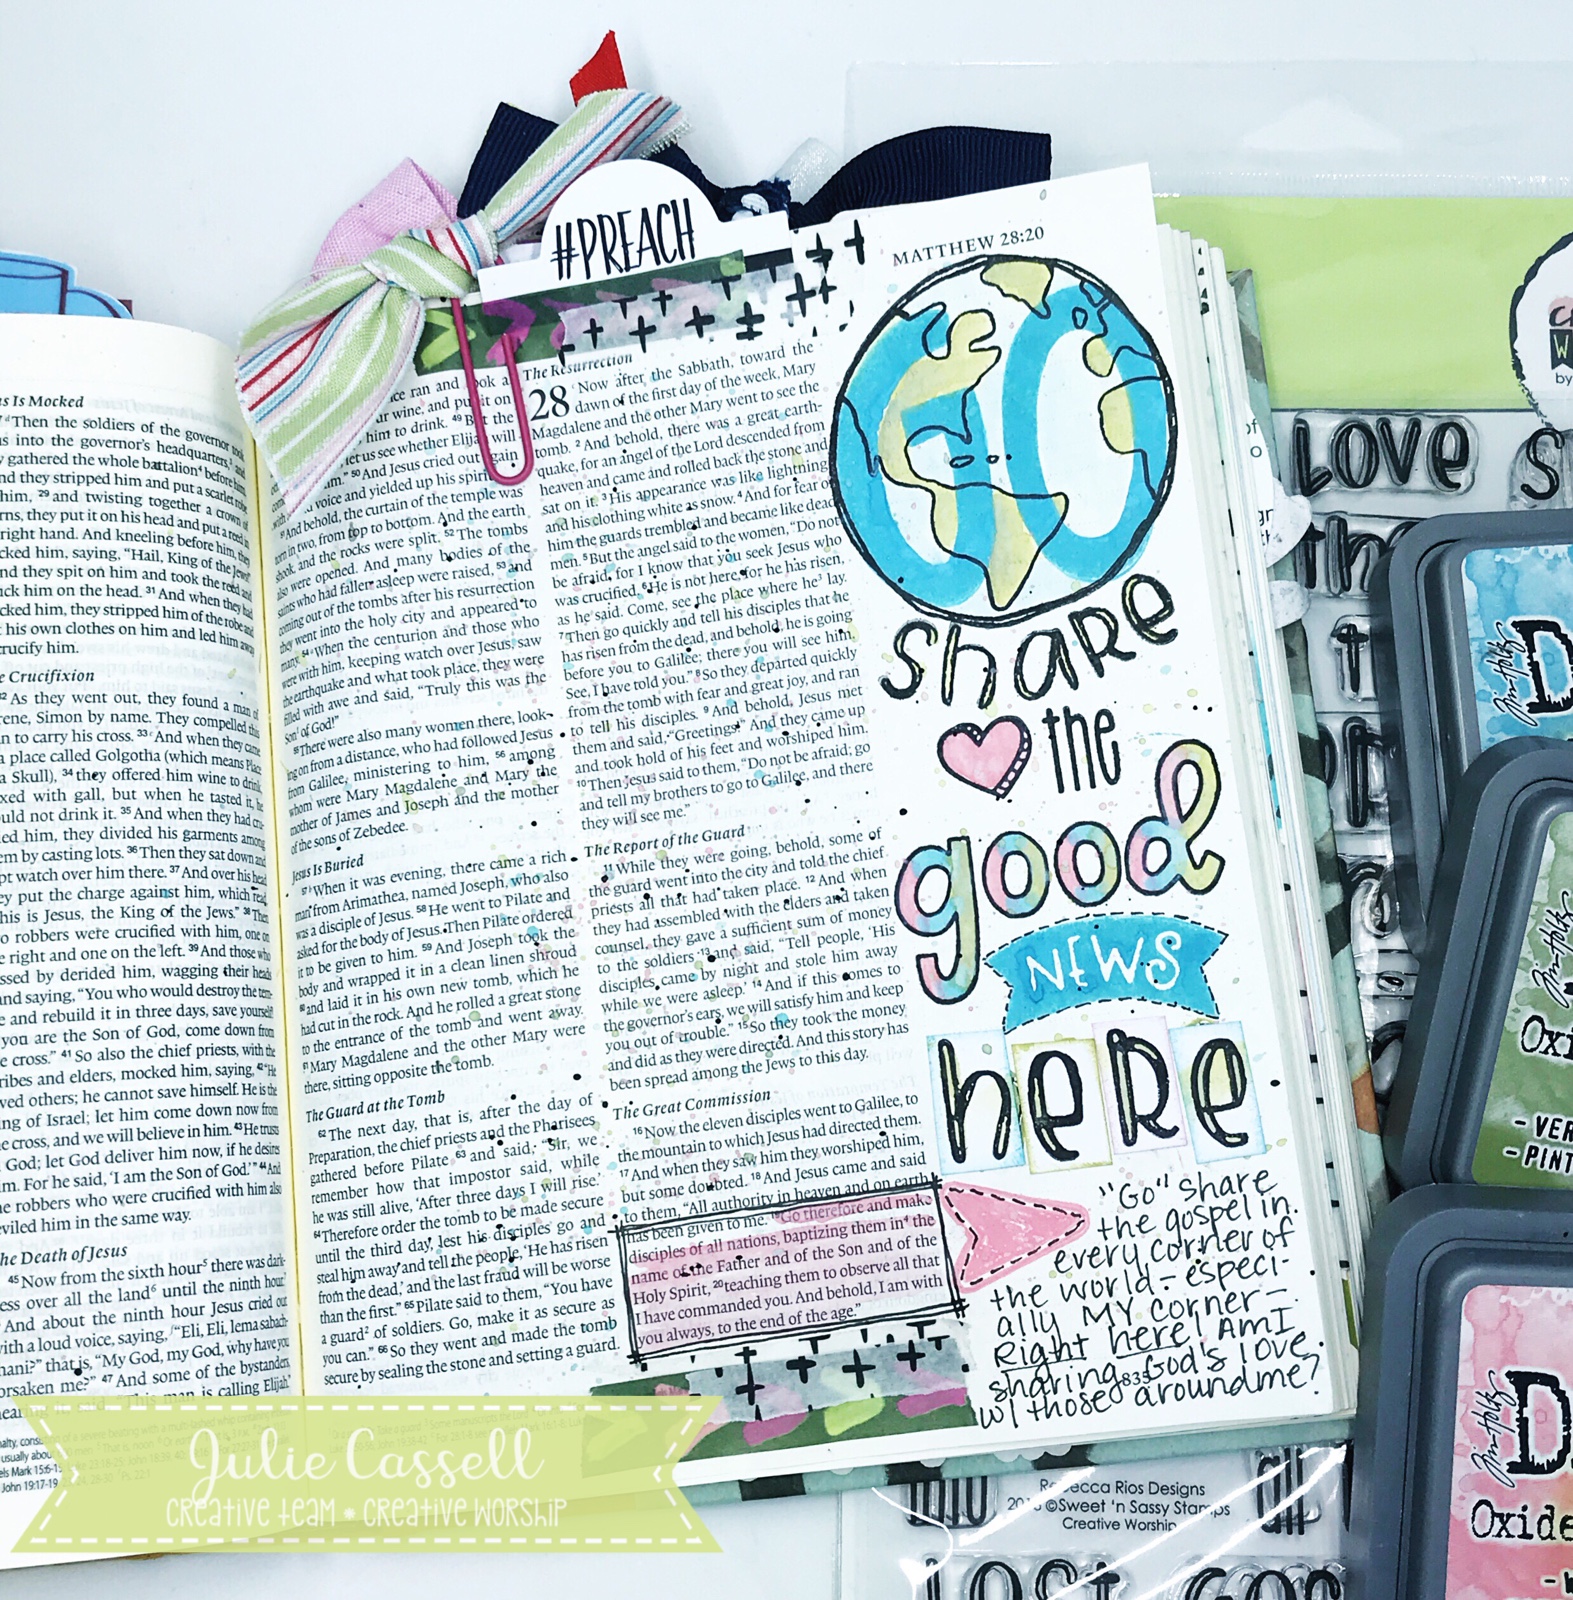 #PREACH
MATTHEW 28:20
us Is Mocked
Then the soldiers of the governor took
s into the governor's headquarters, and
gathered the whole battalion before him.
nd they stripped him and put a scarlet robe
him, 29 and twisting together a crown of
rns, they put it on his head and put a reed in
right hand. And kneeling before him, they
cked him, saying, "Hail, King of the Jews!"
nd they spit on him and took the reed and
uck him on the head. 31 And when they had
cked him, they stripped him of the robe and
his own clothes on him and led him away
rucify him.
e Crucifixion
As they went out, they found a man of
rene, Simon by name. They compelled this
n to carry his cross. 33 And when they came
a place called Golgotha (which means Place
a Skull), 34 they offered him wine to drink,
xed with gall, but when he tasted it, he
ould not drink it. 35 And when they had cru-
ied him, they divided his garments among
em by casting lots. 36 Then they sat down and
pt watch over him there. 37 And over his head
ey put the charge against him, which read,
his is Jesus, the King of the Jews." 38 Then
o robbers were crucified with him, one on
e right and one on the left. 39 And those who
ssed by derided him, wagging their heads
nd saying, "You who would destroy the tem-
e and rebuild it in three days, save yourself!
you are the Son of God, come down from
e cross." 41 So also the chief priests, with the
ribes and elders, mocked him, saying, 42 "He
ved others; he cannot save himself. He is the
ng of Israel; let him come down now from
e cross, and we will believe in him. 43 He trusts
God; let God deliver him now, if he desires
m. For he said, 'I am the Son of God.'" 44 And
e robbers who were crucified with him also
viled him in the same way.
he Death of Jesus
45 Now from the sixth hour there was dark-
ess over all the land until the ninth hour.
And about the ninth hour Jesus cried out
with a loud voice, saying, "Eli, Eli, lema sabach-
hani?" that is, "My God, my God, why have you
orsaken me?" 47 And some of the bystanders,
This man is calling Elijah."
ce ran and took a
ur wine, and put it on
him to drink. 49 But the
let us see whether Elijah will
m." 50 And Jesus cried out again
voice and yielded up his spirit.
And behold, the curtain of the temple was
torn in two, from top to bottom. And the earth
shook, and the rocks were split. 52 The tombs
also were opened. And many bodies of the
saints who had fallen asleep were raised, 53 and
coming out of the tombs after his resurrection
they went into the holy city and appeared to
many. 54 When the centurion and those who
were with him, keeping watch over Jesus, saw
the earthquake and what took place, they were
filled with awe and said, "Truly this was the
Son of God!"
55 There were also many women there, look-
ing on from a distance, who had followed Jesus
from Galilee, ministering to him, 56 among
whom were Mary Magdalene and Mary the
mother of James and Joseph and the mother
of the sons of Zebedee.
Jesus Is Buried
57 When it was evening, there came a rich
man from Arimathea, named Joseph, who also
was a disciple of Jesus. 58 He went to Pilate and
asked for the body of Jesus. Then Pilate ordered
it to be given to him. 59 And Joseph took the
body and wrapped it in a clean linen shroud
60 and laid it in his own new tomb, which he
had cut in the rock. And he rolled a great stone
to the entrance of the tomb and went away.
61 Mary Magdalene and the other Mary were
there, sitting opposite the tomb.
The Guard at the Tomb
62 The next day, that is, after the day of
Preparation, the chief priests and the Pharisees
gathered before Pilate 63 and said, "Sir, we
remember how that impostor said, while
he was still alive, 'After three days I will rise.'
64 Therefore order the tomb to be made secure
until the third day, lest his disciples go and
steal him away and tell the people, 'He has risen
from the dead,' and the last fraud will be worse
than the first." 65 Pilate said to them, "You have
a guard of soldiers. Go, make it as secure as
you can." 66 So they went and made the tomb
secure by sealing the stone and setting a guard.
The Resurrection
28 Now after the Sabbath, toward the
dawn of the first day of the week, Mary
Magdalene and the other Mary went to see the
tomb. 2 And behold, there was a great earth-
quake, for an angel of the Lord descended from
heaven and came and rolled back the stone and
sat on it. 3 His appearance was like lightning,
and his clothing white as snow. 4 And for fear of
him the guards trembled and became like dead
men. 5 But the angel said to the women, "Do not
be afraid, for I know that you seek Jesus who
was crucified. 6 He is not here, for he has risen,
as he said. Come, see the place where he lay.
7 Then go quickly and tell his disciples that he
has risen from the dead, and behold, he is going
before you to Galilee; there you will see him.
See, I have told you." 8 So they departed quickly
from the tomb with fear and great joy, and ran
to tell his disciples. 9 And behold, Jesus met
them and said, "Greetings!" And they came up
and took hold of his feet and worshiped him.
10 Then Jesus said to them, "Do not be afraid; go
and tell my brothers to go to Galilee, and there
they will see me."
The Report of the Guard
11 While they were going, behold, some of
the guard went into the city and told the chief
priests all that had taken place. 12 And when
they had assembled with the elders and taken
counsel, they gave a sufficient sum of money
to the soldiers 13 and said, "Tell people, 'His
disciples came by night and stole him away
while we were asleep.' 14 And if this comes to
the governor's ears, we will satisfy him and keep
you out of trouble." 15 So they took the money
and did as they were directed. And this story has
been spread among the Jews to this day.
The Great Commission
16 Now the eleven disciples went to Galilee, to
the mountain to which Jesus had directed them.
17 And when they saw him they worshiped him,
but some doubted. 18 And Jesus came and said
to them, "All authority in heaven and on earth
has been given to me. 19 Go therefore and make
disciples of all nations, baptizing them in the
name of the Father and of the Son and of the
Holy Spirit, 20 teaching them to observe all that
I have commanded you. And behold, I am with
you always, to the end of the age."
GO
share
the
good
NEWS
heRe
"Go" share
the gospel in
every corner of
the world - especi-
ally MY corner -
Right here! Am I
sharing God's love
w/ those around me?
835
Mark 15:6-1
John 19:17-19
Julie Cassell
CREATIVE TEAM * CREATIVE WORSHIP
Love
by
Tim Holtz
D
Tim Holtz
Oxi
- VER
- PINT
Tim Holtz
Oxide
Rebecca Rios Designs
©Sweet 'n Sassy Stamps
Creative Worship
all